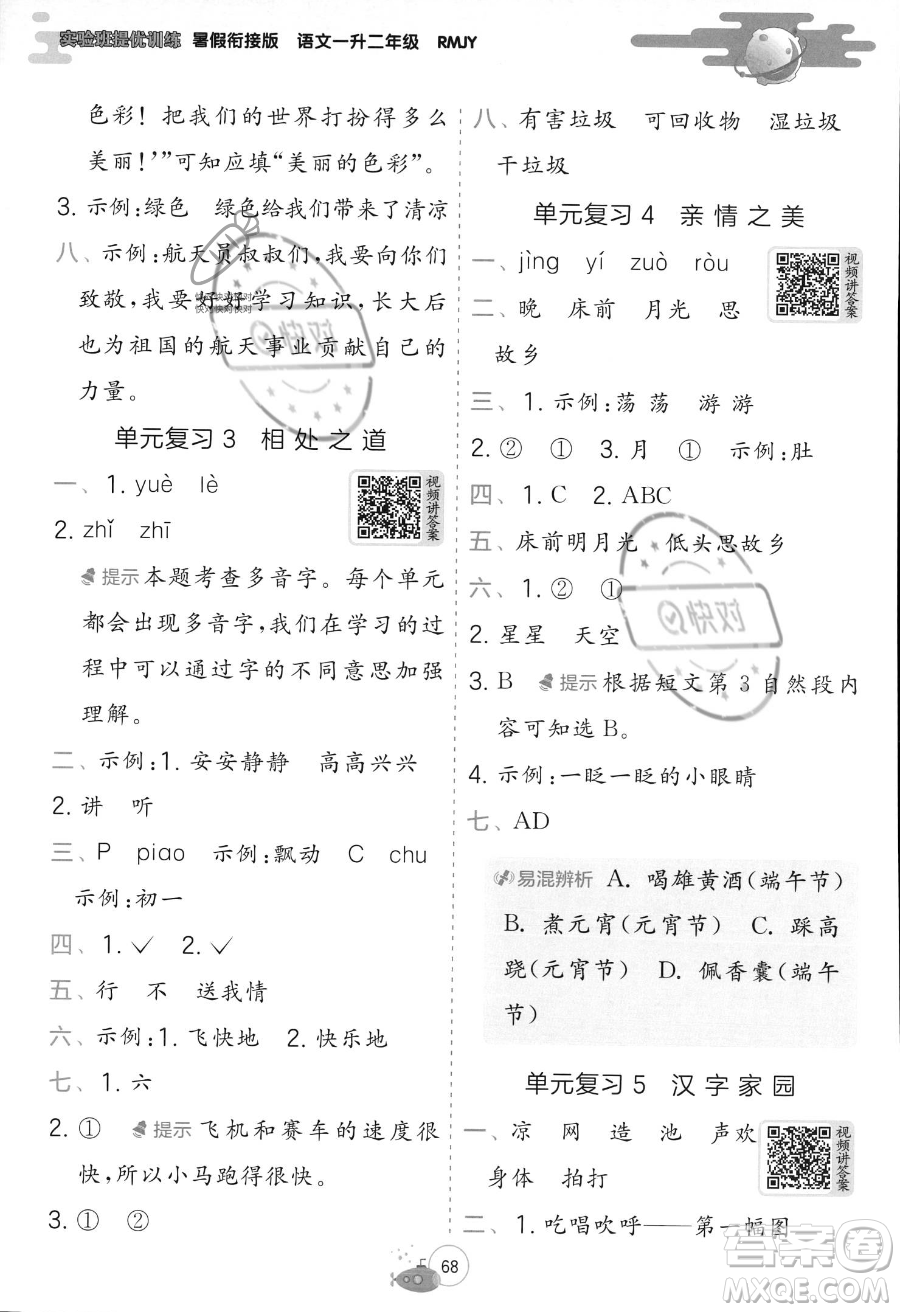 实验班提优训练 暑假衔接版 语文一升二年级 RMJY
色彩！把我们的世界打扮得多么
美丽！’”可知应填“美丽的色彩”。
3. 示例:绿色 绿色给我们带来了清凉
八、示例:航天员叔叔们,我要向你们
致敬,我要好好学习知识,长大后
也为祖国的航天事业贡献自己的
力量。
单元复习3 相处之道
一、1. yuè lè
2. zhǐ zhī
视频讲答案
提示 本题考查多音字。每个单元
都会出现多音字,我们在学习的过
程中可以通过字的不同意思加强
理解。
二、示例:1. 安安静静 高高兴兴
2. 讲 听
三、P piao 示例:飘动 C chu
示例:初一
四、1. ✓ 2. ✓
五、行 不 送我情
六、示例:1. 飞快地 2. 快乐地
七、1. 六
2. ① 提示 飞机和赛车的速度很
快,所以小马跑得很快。
3. ① ②
八、有害垃圾 可回收物 湿垃圾
干垃圾
单元复习4 亲情之美
一、jìng yí zuò ròu
二、晚 床前 月光 思
故乡
视频讲答案
三、1. 示例:荡 荡 游 游
2. ② ① 3. 月 ① 示例:肚
四、1. C 2. ABC
五、床前明月光 低头思故乡
六、1. ② ①
2. 星星 天空
3. B 提示 根据短文第3自然段内
容可知选B。
4. 示例:一眨一眨的小眼睛
七、AD
易混辨析 A. 喝雄黄酒(端午节)
B. 煮元宵(元宵节) C. 踩高
跷(元宵节) D. 佩香囊(端午
节)
单元复习5 汉字家园
一、凉 网 造 池 声欢
身体 拍打
视频讲答案
二、1. 吃唱吹呼——第一幅图
68
快对
快对
快对快对快对
快对快对快对
答案圈
MXQE.COM